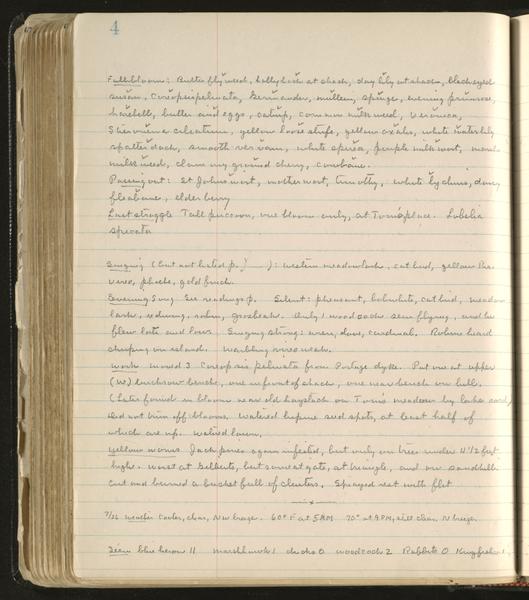 4
Full bloom: Butterfly weed, hollyhock at shack, day lily at shack, blackeyed
susan, coreopsis palmata, germander, mullein, spurge, evening primrose,
harebell, butter and eggs, catnip, common milkweed, veronica,
cileatum, yellow loose strife, yellow oxalis, white water lily
spatterdock, smooth vervain, white spirea, purple milkwort, marsh
milkweed, clammy ground cherry, cowbane.
Passing out: St Johns wort, motherwort, timothy, white lychnis, daisy
fleabane, elderberry
Last struggle Tall puccoon, one bloom only, at Tom's place. Lobelia
spicata
Singing (but not listed p. ): western meadowlark, catbird, yellow
vireo, phoebe, goldfinch.
Evening Song See readings p. Silent: pheasant, bobwhite, catbird, meadow
lark, redwing, robin, grosbeak. Only 1 woodcock seen flying, and he
flew late and low. Singing strong: wren, dove, cardinal. Robins heard
chirping on island. Warbling vireo weak.
Work Moved 3 Coreopsis palmata from Portage dyke. Put one at upper
(W) birchrow bench, one in front of shack, one near bench on hill.
(Later found in bloom near old haystack on Tom's meadow by lake road)
Did not trim off blooms. Watered lupine seed spots, at least half of
which are up. Watered lawn.
Yellow worms. Jack pines again infested, but only on trees under 4 1/2 feet
high. Worst at, but some at gate, at triangle, and on sandhill.
Cut and burned a bucket full of clusters. Sprayed rest with flit
7/22 Weather Cooler, clear, NW breeze. 60° F at 5 AM 70° at 9 PM, still clear. N breeze.
Seen blue heron 11 marsh hawk 1 ducks 0 woodcock 2 Rabbits 0 Kingfisher 1